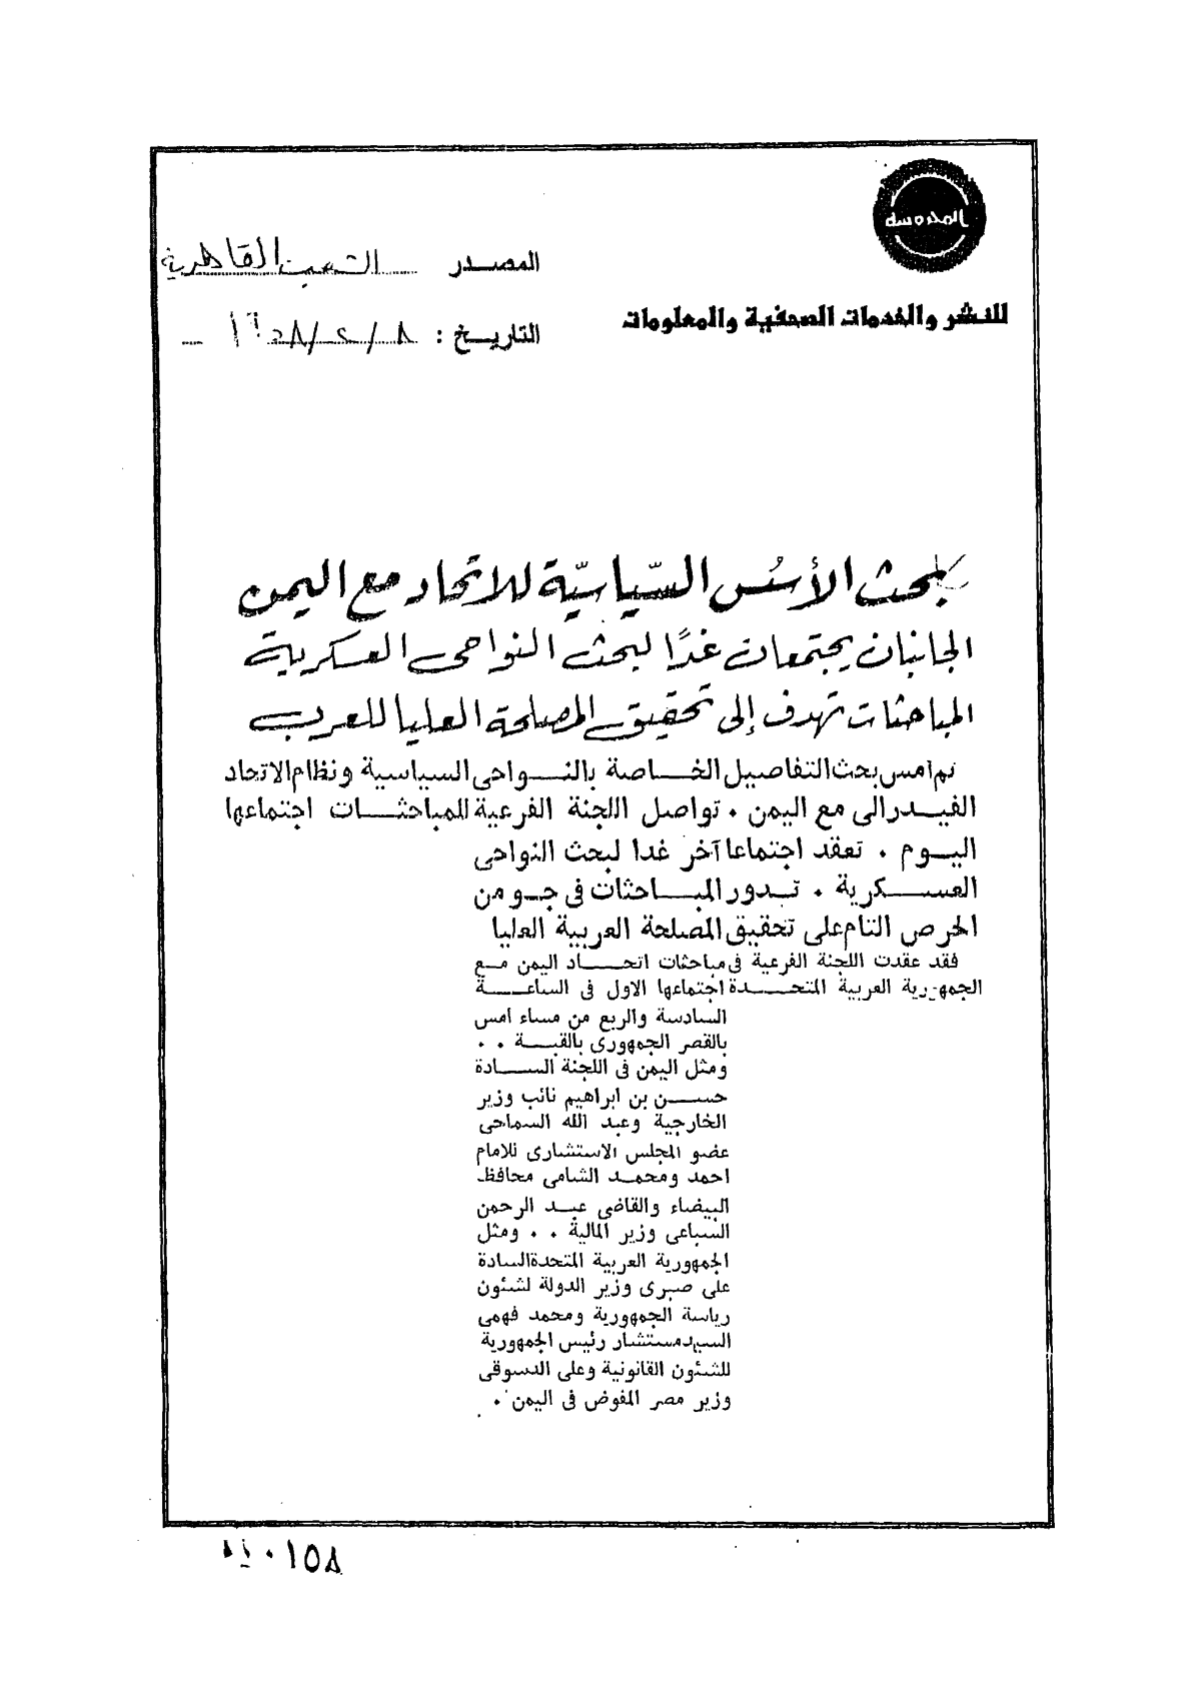 المحروسة
للنشر والخدمات الصحفية والمعلومات
المصدر الشعب القاهرية
التاريخ : ٨/٢/١٩٥٨
بحث الأسس السياسية للاتحاد مع اليمن
الجانبان يجتمعان غدًا لبحث النواحى العسكرية
المباحثات تهدف إلى تحقيق المصلحة العليا للعرب
تم امس بحث التفاصيل الخاصة بالنواحى السياسية ونظام الاتحاد
الفيدرالى مع اليمن . تواصل اللجنة الفرعية للمباحثات اجتماعها
اليوم . تعقد اجتماعا آخر غدا لبحث النواحى
العسكرية . تدور المباحثات فى جو من
الحرص التام على تحقيق المصلحة العربية العليا
فقد عقدت اللجنة الفرعية فى مباحثات اتحاد اليمن مع
الجمهورية العربية المتحدة اجتماعها الاول فى الساعة
السادسة والربع من مساء امس
بالقصر الجمهورى بالقبة . .
ومثل اليمن فى اللجنة السادة
حسن بن ابراهيم نائب وزير
الخارجية وعبد الله السماحى
عضو المجلس الاستشارى للامام
احمد ومحمد الشامى محافظ
البيضاء والقاضى عبد الرحمن
السباعى وزير المالية . . ومثل
الجمهورية العربية المتحدة السادة
على صبرى وزير الدولة لشئون
رياسة الجمهورية ومحمد فهمى
السيد مستشار رئيس الجمهورية
للشئون القانونية وعلى الدسوقى
وزير مصر المفوض فى اليمن .
٠١٥٨